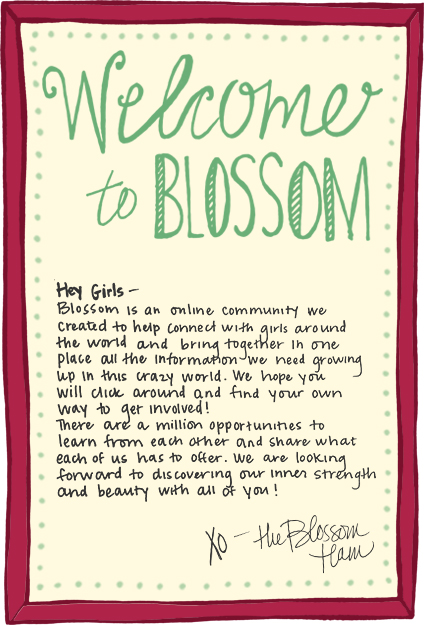 Welcome
to BLOSSOM
Hey Girls –
Blossom is an online community we
created to help connect with girls around
the world and bring together in one
place all the information we need growing
up in this crazy world. We hope you
will click around and find your own
way to get involved!
There are a million opportunities to
learn from each other and share what
each of us has to offer. We are looking
forward to discovering our inner strength
and beauty with all of you!
XO – the Blossom
team